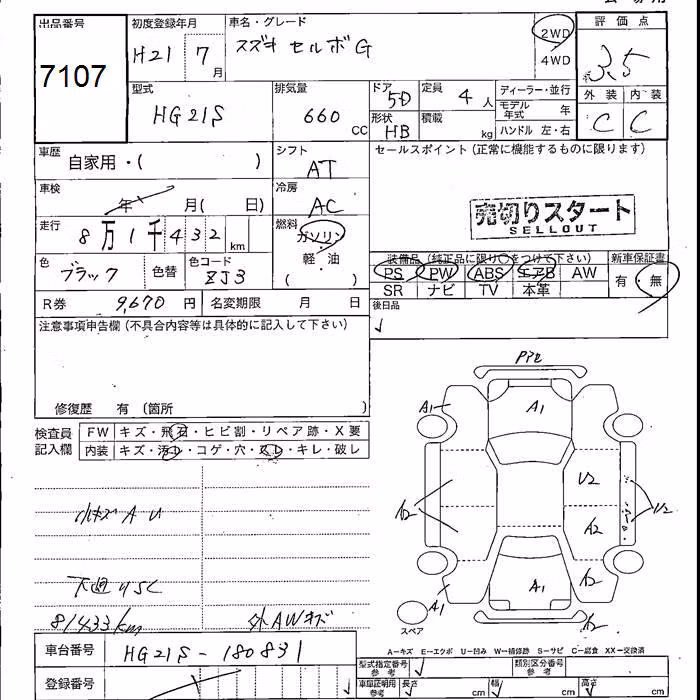 出品番号
7107
初度登録年月
H21 7月
車名・グレード
スズキ セルボ G
2WD
4WD
評価点
3.5
外装 内装
C C
型式
HG21S
排気量
660 CC
ドア
5D
形状
HB
定員
4人
積載
kg
ディーラー・並行
モデル年式 年
ハンドル 左・右
車歴
自家用・( )
シフト
AT
セールスポイント(正常に機能するものに限ります)
売切りスタート
SELLOUT
車検
年 月( 日)
冷房
AC
走行
8万1千432km
燃料
ガソリン
軽・油
( )
色
ブラック
色替
色コード
ZJ3
装備品(純正品に限り○をつけて下さい)
PS PW ABS エアB AW
SR ナビ TV 本革
新車保証書
有・無
R券 9,670円
名変期限 月 日
後日品
注意事項申告欄(不具合内容等は具体的に記入して下さい)
修復歴 有(箇所 )
検査員記入欄
FW キズ・飛石・ヒビ割・リペア跡・X要
内装 キズ・汚レ・コゲ・穴・スレ・キレ・破レ
小キズ A U
下廻りSC
81433km
外AWキズ
A1
A1
U2
A2
A2
A1
A1
A2
スペア
A-キズ E-エクボ U-凹み W-補修跡 S-サビ C-腐食 XX-交換済
車台番号
HG21S-180831
登録番号
型式指定番号
参考
類別区分番号
参考
車庫証明用
参考
長さ cm 幅 cm 高さ cm